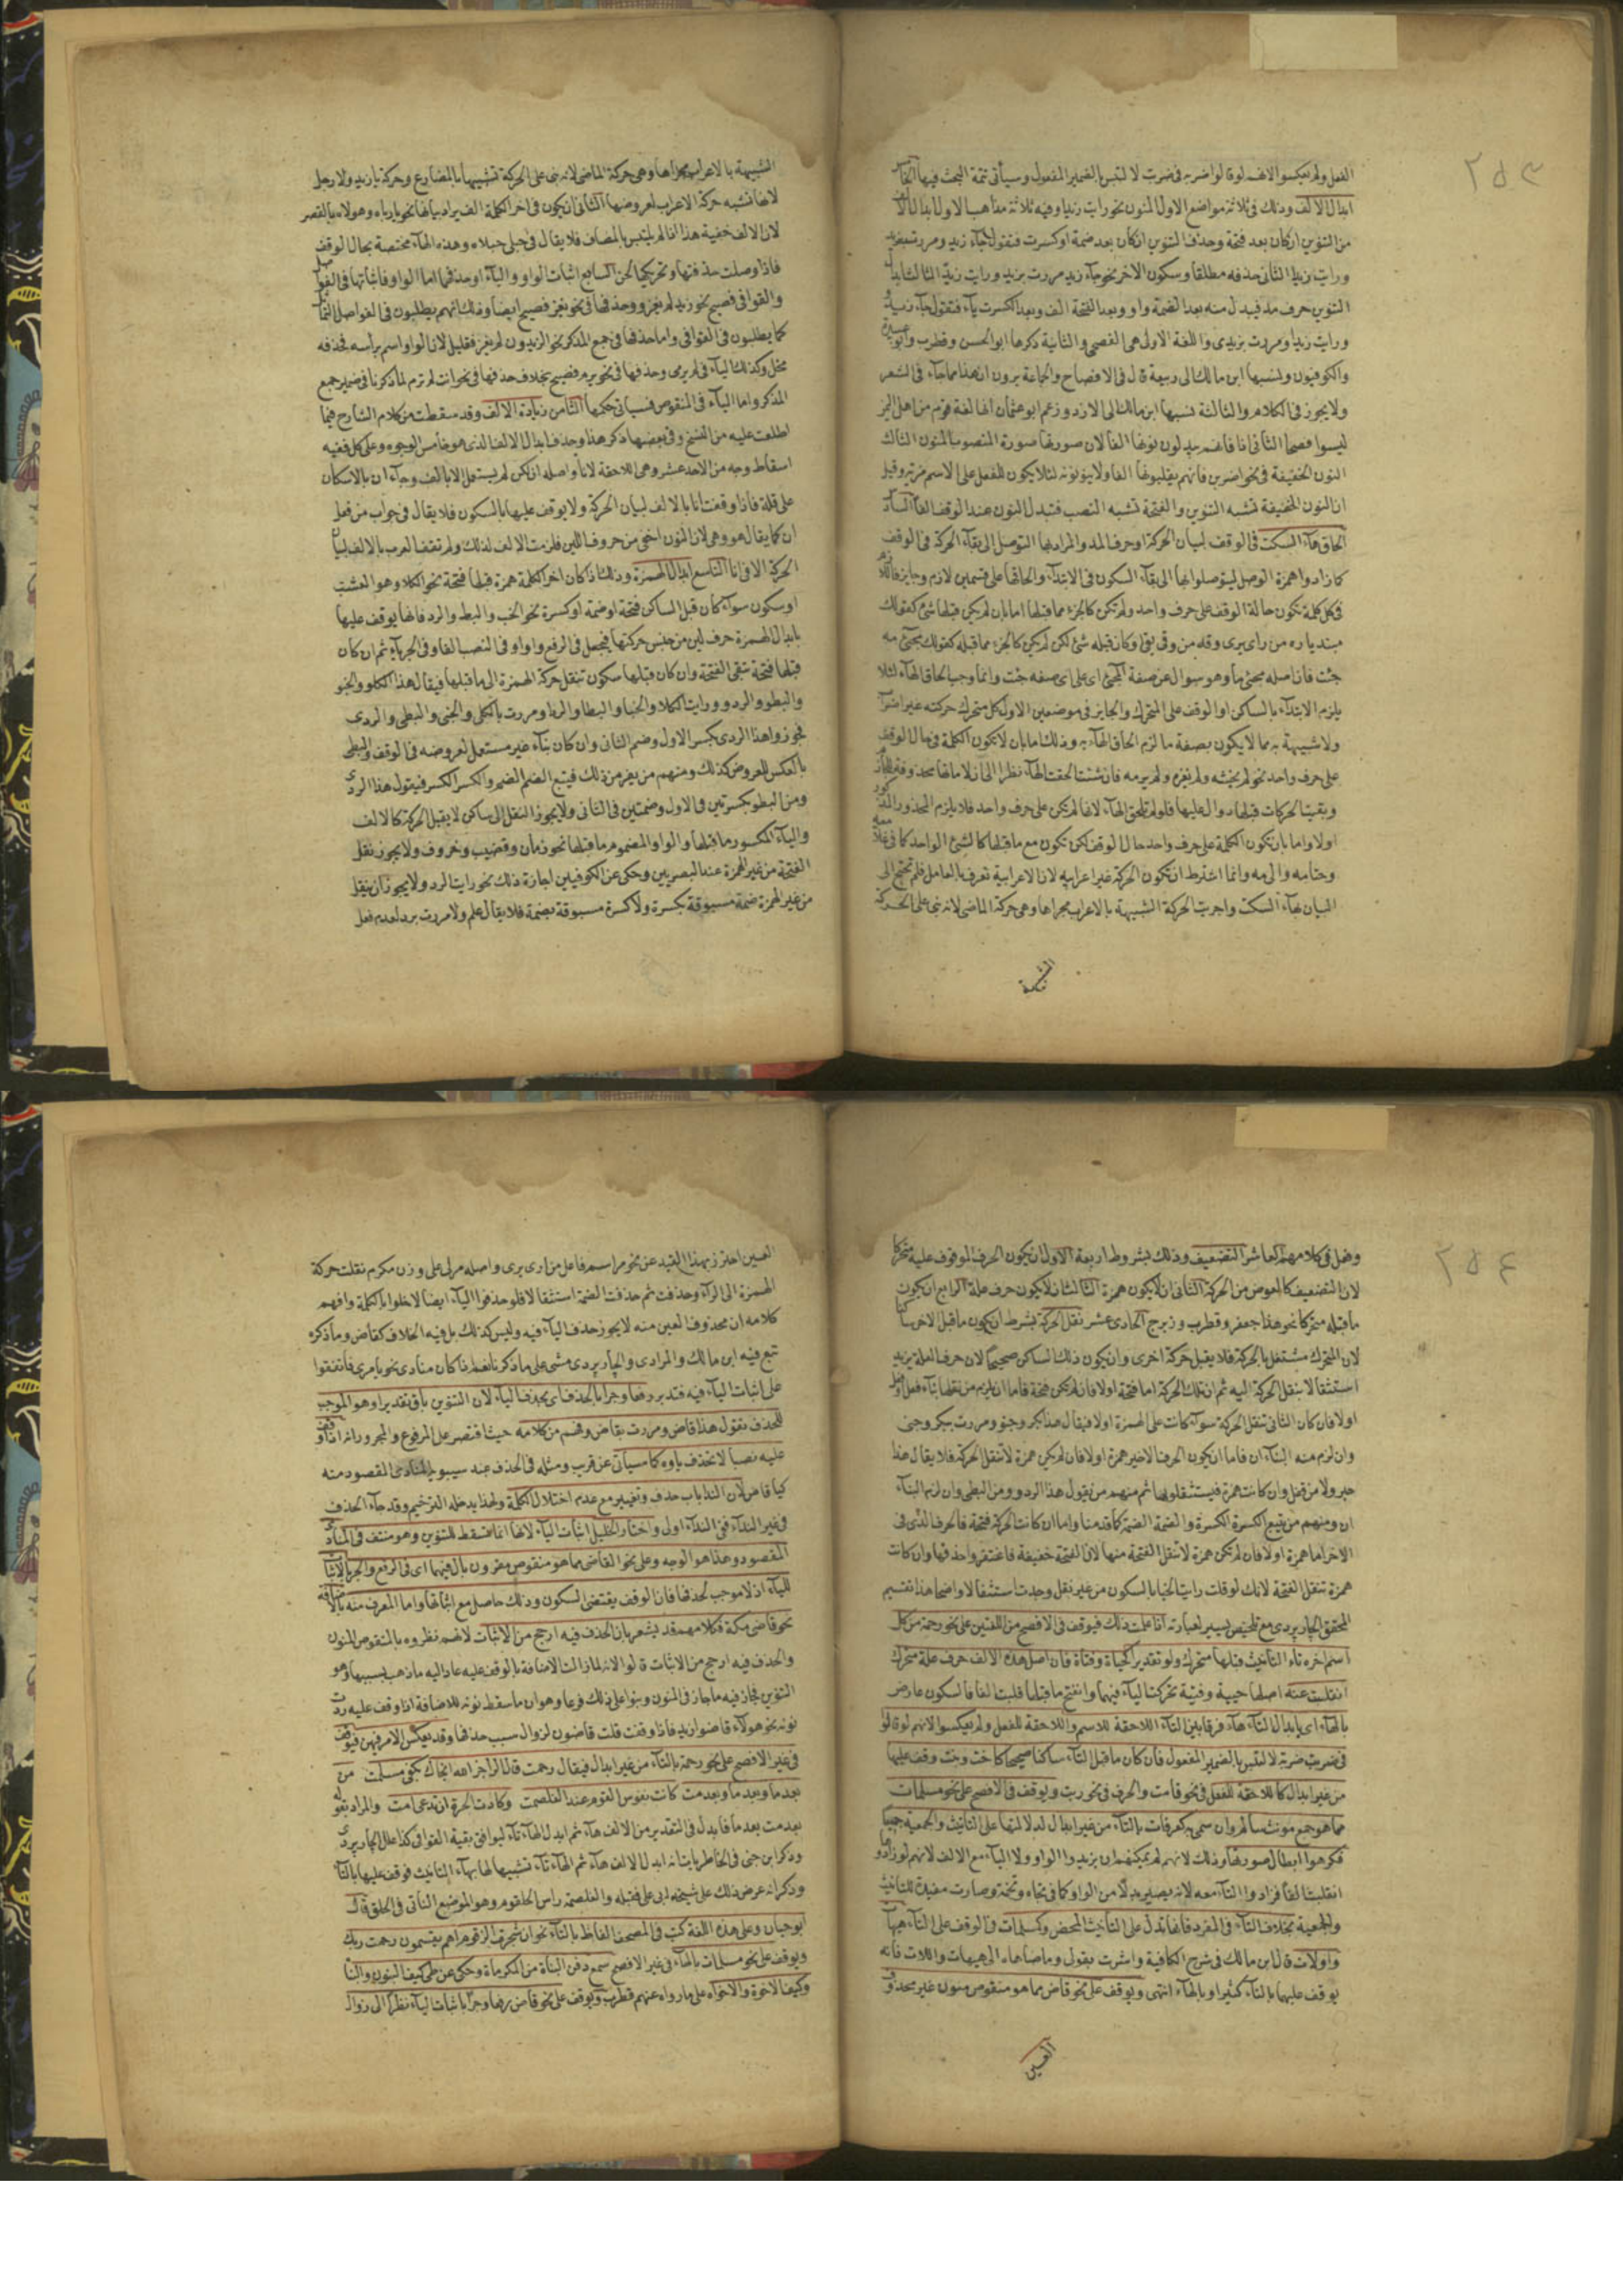 ٢٥٣
الفعل ولم يعكسوا لانهم لو قالوا ضربه في ضربت لالتبس بالضمير المفعول وسيأتي تتمة البحث فيها
ابدال الالف وذلك في ثلاثة مواضع الاول المنون نحو رايت زيدا وفيه ثلاثة مذاهب الاول ابدال الالف
من التنوين ان كان بعد فتحة وحذف التنوين ان كان بعد ضمة او كسرة فتقول جاء زيد ومررت بزيد
ورايت زيدا الثاني حذفه مطلقا وسكون الاخر نحو جاء زيد ومررت بزيد ورايت زيد الثالث ابدال
التنوين حرف مد فيبدل منه بعد الضمة واو وبعد الفتحة الف وبعد الكسرة ياء فتقول جاء زيدو
ورايت زيدا ومررت بزيدي واللغة الاولى هي الفصحى والثانية ذكرها ابو الحسن وقطرب وابو عبيدة
والكوفيون ونسبها ابن مالك الى ربيعة قال في الافصاح والجماعة يرون ان هذا مما جاء في الشعر
ولا يجوز في الكلام والثالثة نسبها ابن مالك الى الازد وزعم ابو عثمان انها لغة قوم من اهل اليمن
ليسوا فصحا الثاني اذا فانهم يبدلون نونها الفا لان صورتها صورة المنصوب المنون الثالث
النون الخفيفة في نحو اضربن فانهم يقلبونها الفا ولا يبقونه لئلا يكون للفعل على الاسم مزية وقيل
ان النون الخفيفة تشبه التنوين والفتحة تشبه النصب فتبدل النون عند الوقف الفا السادس
الحاق هاء السكت في الوقف لبيان الحركة او حرف المد والمراد بها التوصل الى بقاء الحركة في الوقف
كما زادوا همزة الوصل ليتوصلوا بها الى بقاء السكون في الابتداء والحاقها على قسمين لازم وجايز
في كل كلمة تكون حالة الوقف على حرف واحد ولم تكن كالجزء مما قبلها اما بان لم يكن قبلها شئ كقولك
مبتديا ره من راى يرى وقه من وقى يقي او كان قبله شئ لكن لم يكن كالجزء مما قبله كقولك مجئ مه
جئت فان اصله مجئ ما وهو سوال عن صفة المجئ اى على اى صفة جئت وانما وجب الحاق الهاء لئلا
يلزم الابتداء بالساكن او الوقف على المتحرك والجايز في موضعين الاول كل متحرك حركته غير اعرابية
ولا شبيهة به مما لا يكون بصفة ما لزم الحاق الهاء به وذلك اما بان لا تكون الكلمة في حال الوقف
على حرف واحد نحو لم يخشه ولم يغزه ولم يرمه فان شئت الحقت الهاء نظرا الى ان لاماتها محذوفة
وبقيت الحركات قبلها دوال عليها فلو لم تلحق الهاء لانها لم تكن على حرف واحد فلا يلزم المحذور المذكور
اولا واما بان تكون الكلمة على حرف واحد حال الوقف لكن تكون مع ما قبلها كالشئ الواحد كما في علامه
وحتامه والى مه وانما اشترط ان تكون الحركة غير اعرابيه لان الاعرابية تعرف بالعامل فلم تحتج الى
البيان بهاء السكت واجريت الحركة الشبيهة بالاعراب مجراها وهى حركة الماضى لانه بنى على الحركة
الشبيهة
الشبيهة بالاعراب مجراها وهى حركة الماضى لانه بنى على الحركة تشبيها بالمضارع وحركة يا زيد ولا رجل
لانها تشبه حركة الاعراب لعروضها الثانى ان يكون فى اخر الكلمة الف يراد بيانها نحو يا رباه وهولاه بالقصر
لان الالف خفية هذا اذا لم يلتبس بالمضاف فلا يقال فى حبلى حبلاه وهذه الهاء مختصة بحال الوقف
فاذا وصلت حذفتها وتحريكها لحن السابع اثبات الواو والياء او حذفهما اما الواو فاثباتها فى الفواصل
والقوافى فصيح نحو زيد لم يغزو وحذفها فى نحو يغز فصيح ايضا وذلك انهم يطلبون فى الفواصل التماثل
كما يطلبون فى القوافى واما حذفها فى جمع المذكر نحو الزيدون لم يغز فقليل لان الواو اسم برأسه فحذفه
مخل وكذلك الياء فى لم يرمى وحذفها فى نحو يرم فصيح بخلاف حذفها فى نحو انت لم ترم لما ذكرنا فى ضمير جمع
المذكر واما الياء فى المنقوص فسياتى حكمها الثامن زيادة الالف وقد سقطت من كلام الشارح فيما
اطلعت عليه من النسخ وفى بعضها ذكر هذا وحذف ابدال الالف الذى هو خامس الوجوه وعلى كل ففيه
اسقاط وجه من الاحد عشر وهى اللاحقة لانا واصله ان لكن لم يستعمل الا بالالف وجاء ان بالاسكان
على قلة فاذا وقفت انا بالالف لبيان الحركة ولا يوقف عليها بالسكون فلا يقال فى جواب من فعل
ان كما يقال هو وهى لان النون اخفى من حروف اللين فلزمت الالف لذلك ولم تقف العرب بالالف لبيان
الحركة الا فى انا التاسع ابدال الهمزة وذلك اذا كان اخر الكلمة همزة قبلها فتحة نحو الكلا وهو العشب
او سكون سواء كان قبل الساكن فتحة او ضمة او كسرة نحو الخبء والبطء والردء فانها يوقف عليها
بابدال الهمزة حرف لين من جنس حركتها فيجعل فى الرفع واوا وفى النصب الفا وفى الجر ياء ثم ان كان
قبلها فتحة تبقى الفتحة وان كان قبلها سكون تنقل حركة الهمزة الى ما قبلها فيقال هذا الكلو والخبو
والبطو والردو ورايت الكلا والخبا والبطا والردا ومررت بالكلى والخبى والبطى والردى
فجوزوا هذا الردى بكسر الاول وضم الثانى وان كان بناء غير مستعمل لعروضه فى الوقف والبطى
بالعكس للعروض كذلك ومنهم من يفر من ذلك فيتبع الضم الضم والكسر الكسر فيقول هذا الردى
ومن البطو بكسرتين فى الاول وضمتين فى الثانى ولا يجوز النقل الى ساكن لا يقبل الحركة كالالف
والياء المكسور ما قبلها والواو المضموم ما قبلها نحو زمان وقضيب وخروف ولا يجوز نقل
الفتحة من غير الهمزة عند البصريين وحكى عن الكوفيين اجازة ذلك نحو رايت الرد ولا يجوز ان ينقل
من غير الهمزة ضمة مسبوقة بكسرة ولا كسرة مسبوقة بضمة فلا يقال علم ولا مررت ببرد لعدم فعل
٢٥٤
وفعل فى كلامهم العاشر التضعيف وذلك بشروط اربعة الاول ان يكون الحرف الموقوف عليه متحركا
لان التضعيف كالعوض من الحركة الثانى ان لا يكون همزة الثالث ان لا يكون حرف علة الرابع ان يكون
ما قبله متحركا نحو هذا جعفر وقطرب وزبرج الحادى عشر نقل الحركة بشرط ان يكون ما قبل الاخر ساكنا
لان المتحرك مشتغل بالحركة فلا يقبل حركة اخرى وان يكون ذلك الساكن صحيحا لان حرف العلة يزيد
استثقالا بنقل الحركة اليه ثم ان تلك الحركة اما فتحة اولا فان لم تكن فتحة فاما ان يلزم من نقلها بناء فعل
اولا فان كان الثانى تنقل الحركة سواء كانت على الهمزة اولا فيقال هذا بكر وخبؤ ومررت ببكر وخبئ
وان لزم منه البناء ان فاما ان يكون الحرف الاخير همزة اولا فان لم يكن همزة لا تنقل الحركة فلا يقال هذا
حبر ولا من قفل وان كانت همزة فيستثقلونها ثم منهم من يقول هذا الردو ومن البطى وان لزم البناء
ان ومنهم من يتبع الكسرة الكسرة والضمة الضمة كما قدمنا واما ان كانت الحركة فتحة فالحرف الذى فى
الاخر اما همزة اولا فان لم تكن همزة لا تنقل الفتحة منها لان الفتحة خفيفة فاغتفر واحذفها وان كانت
همزة تنقل الفتحة لانك لو قلت رايت الخبا بالسكون من غير نقل وجدت استثقالا واضحا هذا تقسيم
المحقق الجاربردى مع تلخيص يسير لعبارته اذا علمت ذلك فيوقف فى الافصح من اللغتين على نحو رحمة من كل
اسم اخره تاء التانيث قبلها متحرك ولو تقديرا كحياة وفتاة فان اصل هذه الالف حرف علة متحرك
انقلبت عنه اصلها حيية وفتية تحركت الياء فيهما وانفتح ما قبلها فقلبت الفا فالسكون عارض
بالهاء اى بابدال التاء هاء فرقا بين التاء اللاحقة للاسم واللاحقة للفعل ولم يعكسوا لانهم لو قالوا
فى ضربت ضربه لالتبس بالضمير المفعول فان كان ما قبل التاء ساكنا صحيحا كاخت وبنت وقف عليها
من غير ابدال كاللاحقة للفعل فى نحو قامت والحرف فى نحو ربت ويوقف فى الافصح على نحو مسلمات
مما هو جمع مونث سالم وان سمى به كعرفات بالتاء من غير ابدال لدلالتها على التانيث والجمعية جميعا
فكرهوا ابطال صورتها وذلك لانهم لم يمكنهم ان يزيدوا الواو ولا الياء مع الالف لانهم لو زادوا
انقلبت الفا فزادوا التاء معه لانه يصير بدلا من الواو كما فى تجاه وتخمة وصارت مفيدة للتانيث
والجمعية بخلاف التاء فى المفرد فانها تدل على التانيث المحض وكمسلمات فى الوقف على التاء هيهات
واولات قال ابن مالك فى شرح الكافية واشرت بقولى وما ضاهاه الى هيهات واللات فانه
يوقف عليها بالتاء كثيرا وبالهاء انتهى ويوقف على نحو قاض مما هو منقوص منون غير محذوف
العين
العين احترز بهذا القيد عن نحو مر اسم فاعل من ارى يرى واصله مرئى على وزن مكرم نقلت حركة
الهمزة الى الراء وحذفت ثم حذفت الضمة استثقالا فلو حذفوا الياء ايضا لاخلوا بالكلمة وافهم
كلامه ان محذوف العين منه لا يجوز حذف الياء فيه وليس كذلك بل فيه الخلاف كقاض وما ذكره
تبع فيه ابن مالك والمرادى والجاربردى مشى على ما ذكرنا نعم اذا كان منادى نحو يا مرى فاتفقوا
على اثبات الياء فيه فتدبر رفعا وجرا بالحذف اى بحذف الياء لان التنوين باق تقديرا وهو الموجب
للحذف تقول هذا قاض ومررت بقاض وفهم من كلامه حيث اقتصر على المرفوع والمجرور انه اذا وقف
عليه نصبا لا تحذف ياوه كما سياتى عن قريب ومثله فى الحذف عند سيبويه المنادى المقصود منه
كيا قاض لان النداء باب حذف وتغيير مع عدم اختلال الكلمة ولهذا يدخله الترخيم وقد جاء الحذف
فى غير النداء ففى النداء اولى واختار الخليل اثبات الياء لانها انما تسقط للتنوين وهو منتف فى المنادى
المقصود وهذا هو الوجه وعلى نحو القاضى مما هو منقوص مقرون بال فيهما اى فى الرفع والجر بالاثبات
للياء اذ لا موجب لحذفها فان الوقف يقتضى السكون وذلك حاصل مع اثباتها واما المعرف منه بالاضافة
نحو قاضى مكة فكلامهم قد يشعر بان الحذف فيه ارجح من الاثبات لانهم نظروه بالمنقوص المنون
والحذف فيه ارجح من الاثبات قالوا لانه لما زالت الاضافة بالوقف عليه عاد اليه ما ذهب بسببها وهو
التنوين فجاز فيه ما جاز فى المنون وبنوا على ذلك فرعا وهو ان ما سقط نونه للاضافة اذا وقف عليه ردت
نونه نحو هولاء قاضوا زيد فاذا وقفت قلت قاضون لزوال سبب حذفها وقد يعكس الامر فيهن فيوقف
فى غير الافصح على نحو رحمة بالتاء من غير ابدال فيقال رحمت قال الراجز الله انجاك بكفى مسلمت من
بعد ما وبعد ما وبعدمت كانت نفوس القوم عند الغلصمت وكادت الحرة ان تدعى امت والمراد بقوله
بعدمت بعد ما فابدل فى التقدير من الالف هاء ثم ابدل الهاء تاء ليوافق بقية القوافى كذا علل الجاربردى
وذكر ابن جنى فى الخاطريات انه ابدل الالف هاء ثم الهاء تاء تشبيها لها بهاء التانيث فوقف عليها بالتاء
وذكر انه عرض ذلك على شيخه ابى على فقبله والغلصمة راس الحلقوم وهو الموضع الناتى فى الحلق قال
ابو حيان وعلى هذه اللغة كتب فى المصحف الفاظ بالتاء نحو ان شجرت الزقوم اهم يقسمون رحمت ربك
ويوقف على نحو مسلمات بالهاء فى غير الافصح سمع دفن البناه من المكرماه وحكى عن طى كيف البنون والبناه
وكيف الاخوة والاخواه على ما رواه عنهم قطرب ويوقف على نحو قاض رفعا وجرا باثبات الياء نظرا الى زوال